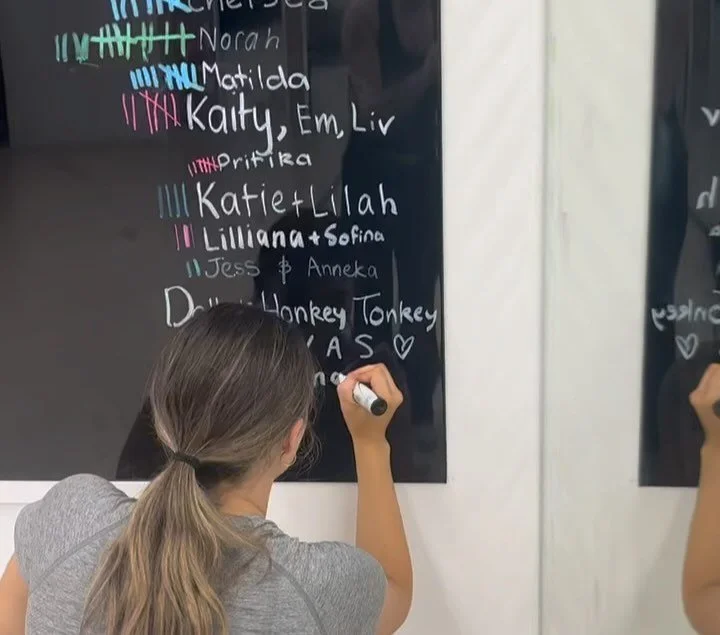 Chelsea
Norah
Matilda
Kaity, Em, Liv
Pritika
Katie + Lilah
Lilliana + Sofina
Jess & Anneka
Honkey Tonkey
A S ♡